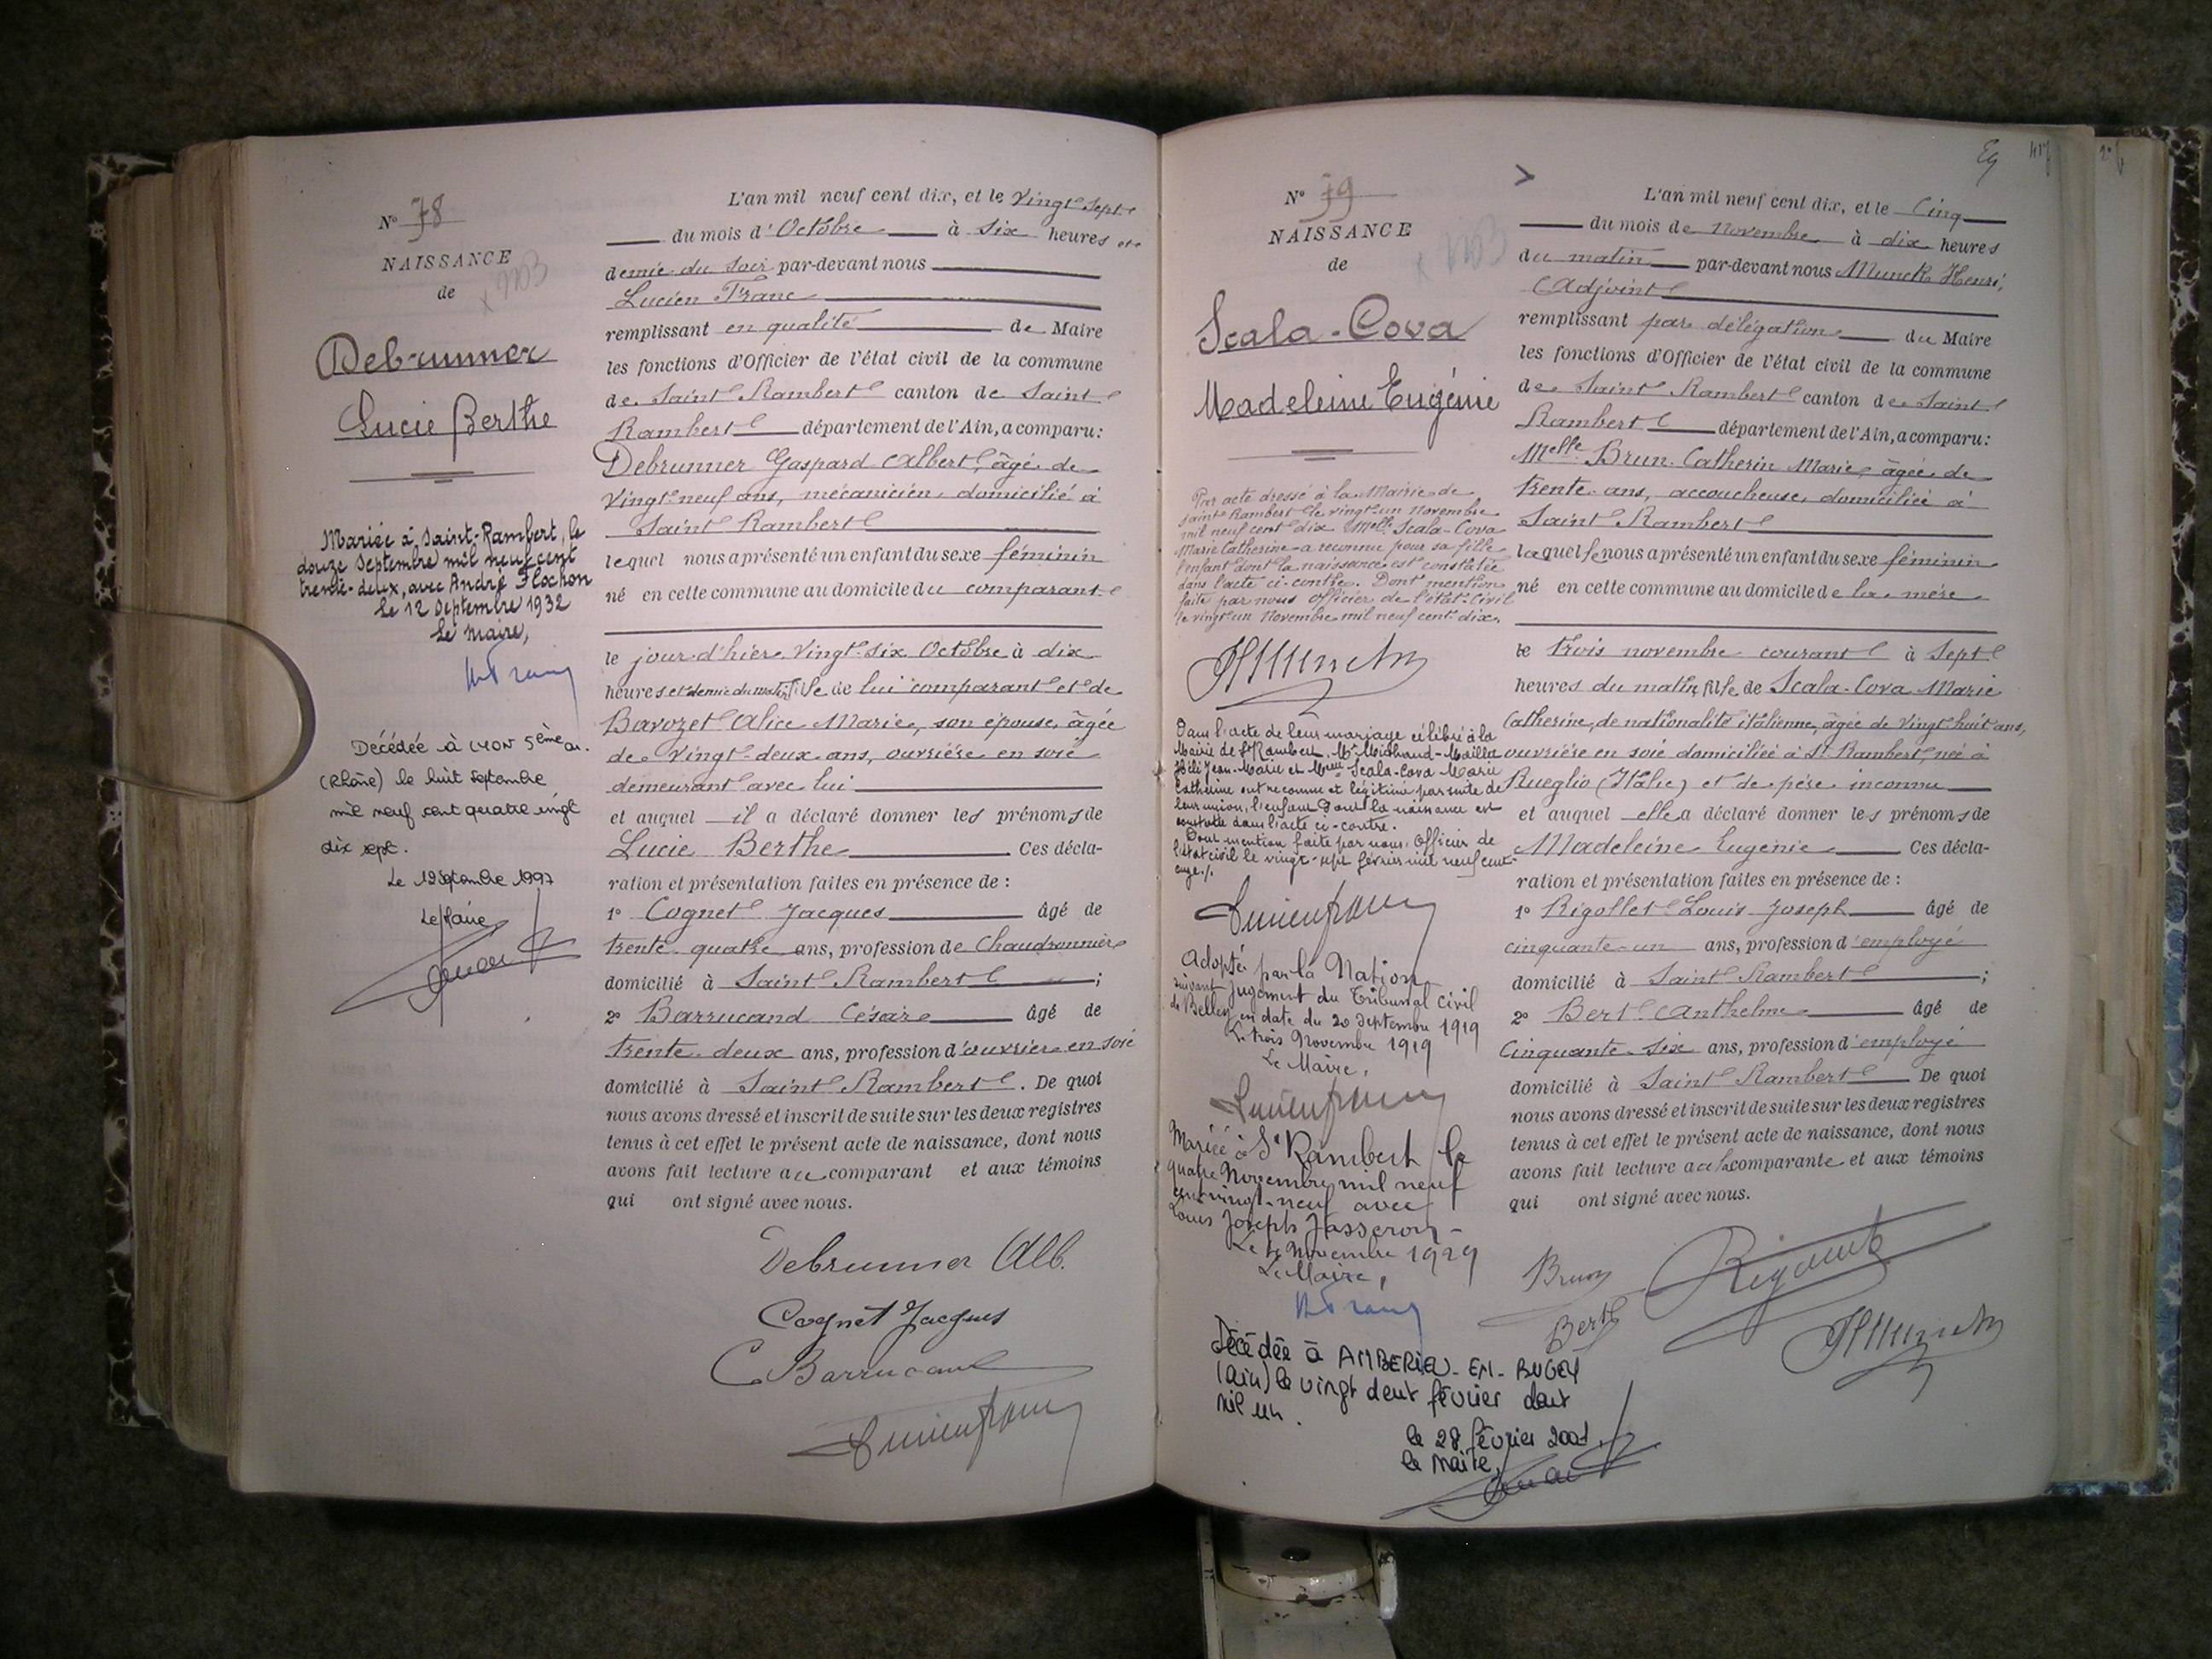 N° 78
NAISSANCE
de
Debrunner
Lucie Berthe
Mariée à Saint-Rambert, le
douze Septembre mil neuf cent
trente-deux, avec André Flochon
Le 12 Septembre 1932
Le Maire,
Décédée à LYON 5ème ar.
(Rhône) le huit septembre
mil neuf cent quatre vingt
dix sept.
Le 12 septembre 1997
Le Maire
L'an mil neuf cent dix, et le vingt sept
du mois d'Octobre à six heures et
demie du soir par-devant nous
Lucien Franc
remplissant en qualité de Maire
les fonctions d'Officier de l'état civil de la commune
de Saint Rambert canton de Saint
Rambert département de l'Ain, a comparu:
Debrunner Gaspard Albert, âgé de
vingt-neuf ans, mécanicien, domicilié à
Saint Rambert
lequel nous a présenté un enfant du sexe féminin
né en cette commune au domicile du comparant
le jour d'hier, vingt-six Octobre à dix
heures et demie du matin, fille de lui comparant et de
Bavozet Alice Marie, son épouse, âgée
de vingt-deux ans, ouvrière en soie
demeurant avec lui
et auquel il a déclaré donner les prénoms de
Lucie Berthe Ces décla-
ration et présentation faites en présence de :
1° Cognet Jacques âgé de
trente quatre ans, profession de Chaudronnier
domicilié à Saint Rambert ;
2° Barrucand César âgé de
trente-deux ans, profession d'ouvrier en soie
domicilié à Saint Rambert. De quoi
nous avons dressé et inscrit de suite sur les deux registres
tenus à cet effet le présent acte de naissance, dont nous
avons fait lecture au comparant et aux témoins
qui ont signé avec nous.
Debrunner Alb.
Cognet Jacques
C Barrucand
Lucien Franc
N° 79
NAISSANCE
de
Scala-Cova
Madeleine Eugénie
Par acte dressé à la Mairie de
Saint Rambert le vingt-un Novembre
mil neuf cent dix Melle Scala-Cova
Marie Catherine a reconnu pour sa fille
l'enfant dont la naissance est constatée
dans l'acte ci-contre. Dont mention
faite par nous Officier de l'état-Civil
le vingt un Novembre mil neuf cent dix.
HMunck
Dans l'acte de leur mariage célébré à la
Mairie de St Rambert, Mr Michaud-Maillet
Jean-Marie et Melle Scala-Cova Marie
Catherine ont reconnu et légitimé par suite de
leur union, l'enfant dont la naissance est
constatée dans l'acte ci-contre.
Dont mention faite par nous, Officier de
l'état civil le vingt-sept février mil neuf cent
onze./.
Lucien Franc
Adoptée par la Nation
suivant jugement du Tribunal Civil
de Belley en date du 20 Septembre 1919
Le trois Novembre 1919
Le Maire,
Lucien Franc
Mariée à St Rambert le
quatre Novembre mil neuf
cent vingt-neuf avec
Louis Joseph Jasseron
Le 4 Novembre 1929
Le Maire,
Décédée à AMBERIEU-EN-BUGEY
(Ain) le vingt deux février deux
mil un.
le 28 février 2001
le Maire,
L'an mil neuf cent dix, et le Cinq
du mois de Novembre à dix heures
du matin par-devant nous Munck Henri,
Adjoint
remplissant par délégation du Maire
les fonctions d'Officier de l'état civil de la commune
de Saint Rambert canton de Saint
Rambert département de l'Ain, a comparu:
Melle Brun Catherin Marie, âgée de
trente ans, accoucheuse, domiciliée à
Saint Rambert
laquelle nous a présenté un enfant du sexe féminin
né en cette commune au domicile de la mère
le trois novembre courant à sept
heures du matin, fille de Scala-Cova Marie
Catherine, de nationalité italienne, âgée de vingt huit ans,
ouvrière en soie domiciliée à St Rambert, née à
Rueglio (Italie) et de père inconnu
et auquel elle a déclaré donner les prénoms de
Madeleine Eugénie Ces décla-
ration et présentation faites en présence de :
1° Rigollet Louis Joseph âgé de
cinquante-un ans, profession d'employé
domicilié à Saint Rambert ;
2° Bert Anthelme âgé de
Cinquante-six ans, profession d'employé
domicilié à Saint Rambert De quoi
nous avons dressé et inscrit de suite sur les deux registres
tenus à cet effet le présent acte de naissance, dont nous
avons fait lecture a la comparante et aux témoins
qui ont signé avec nous.
Brun
Bert
HMunck